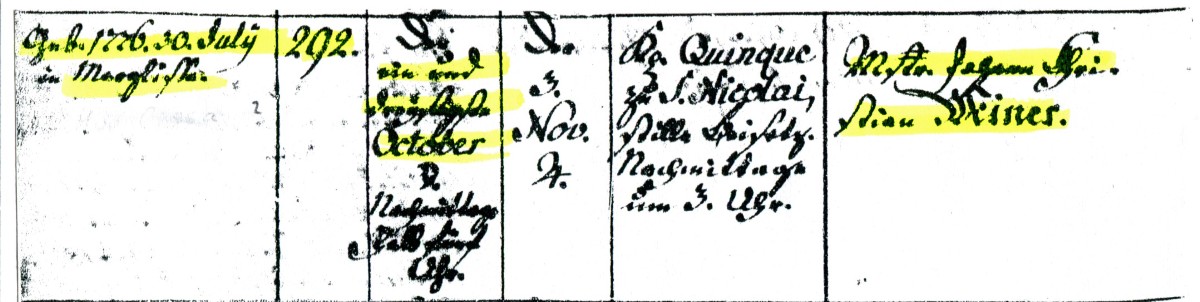 Geb. 1776. 30. July
in Marglissa.
292.
ein und
dreyßigste
October
Nachmittage
halb fünf
Uhr.
3.
Nov.
4.
Quinque
zu S. Nicolai,
stille Beisetz.
Nachmittage
um 3. Uhr.
Mstr. Johann Chri-
stian